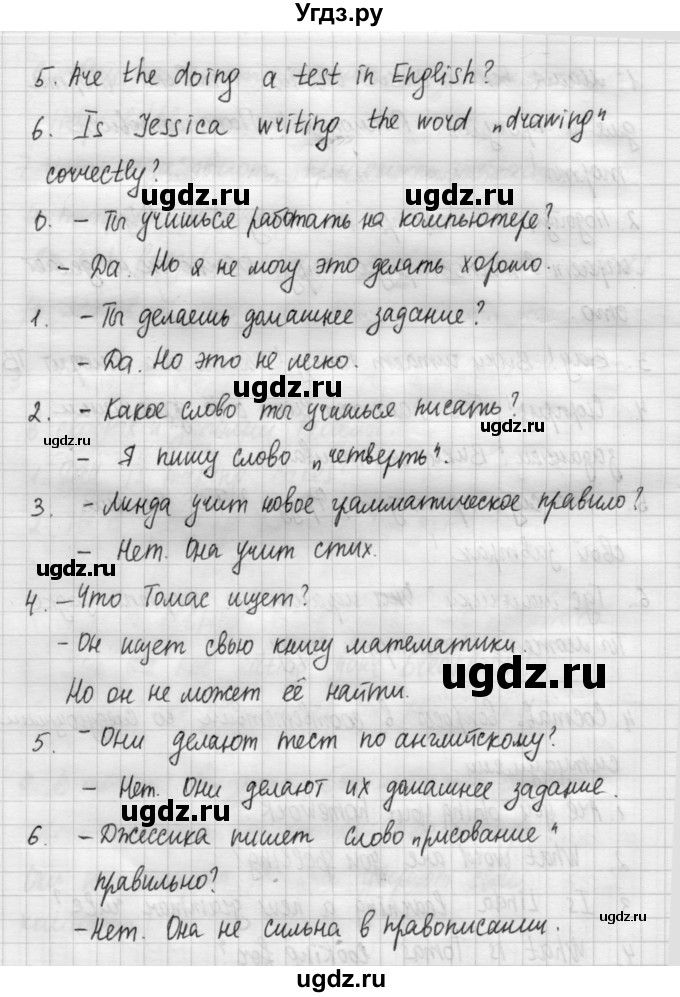 Угдз.ру
5. Are the doing a test in English?
6. Is Jessica writing the word „drawing"
correctly?
ugdz.ru
ugdz.ru
0. - Ты учишься работать на компьютере?
- Да. Но я не могу это делать хорошо.
1. - Ты делаешь домашнее задание?
- Да. Но это не легко.
ugdz.ru
2. - Какое слово ты учишься писать?
ugdz.ru
ugdz.ru
- Я пишу слово „четверть".
3. - Линда учит новое грамматическое правило?
- Нет. Она учит стих.
ugdz.ru
4. - Что Томас ищет?
- Он ищет свою книгу математики.
ugdz.ru
Но он не может её найти.
5. - Они делают тест по английскому?
- Нет. Они делают их домашнее задание.
ugdz.ru
6. - Джессика пишет слово „рисование"
правильно?
ugdz.ru
- Нет. Она не сильна в правописании.
ugdz.ru